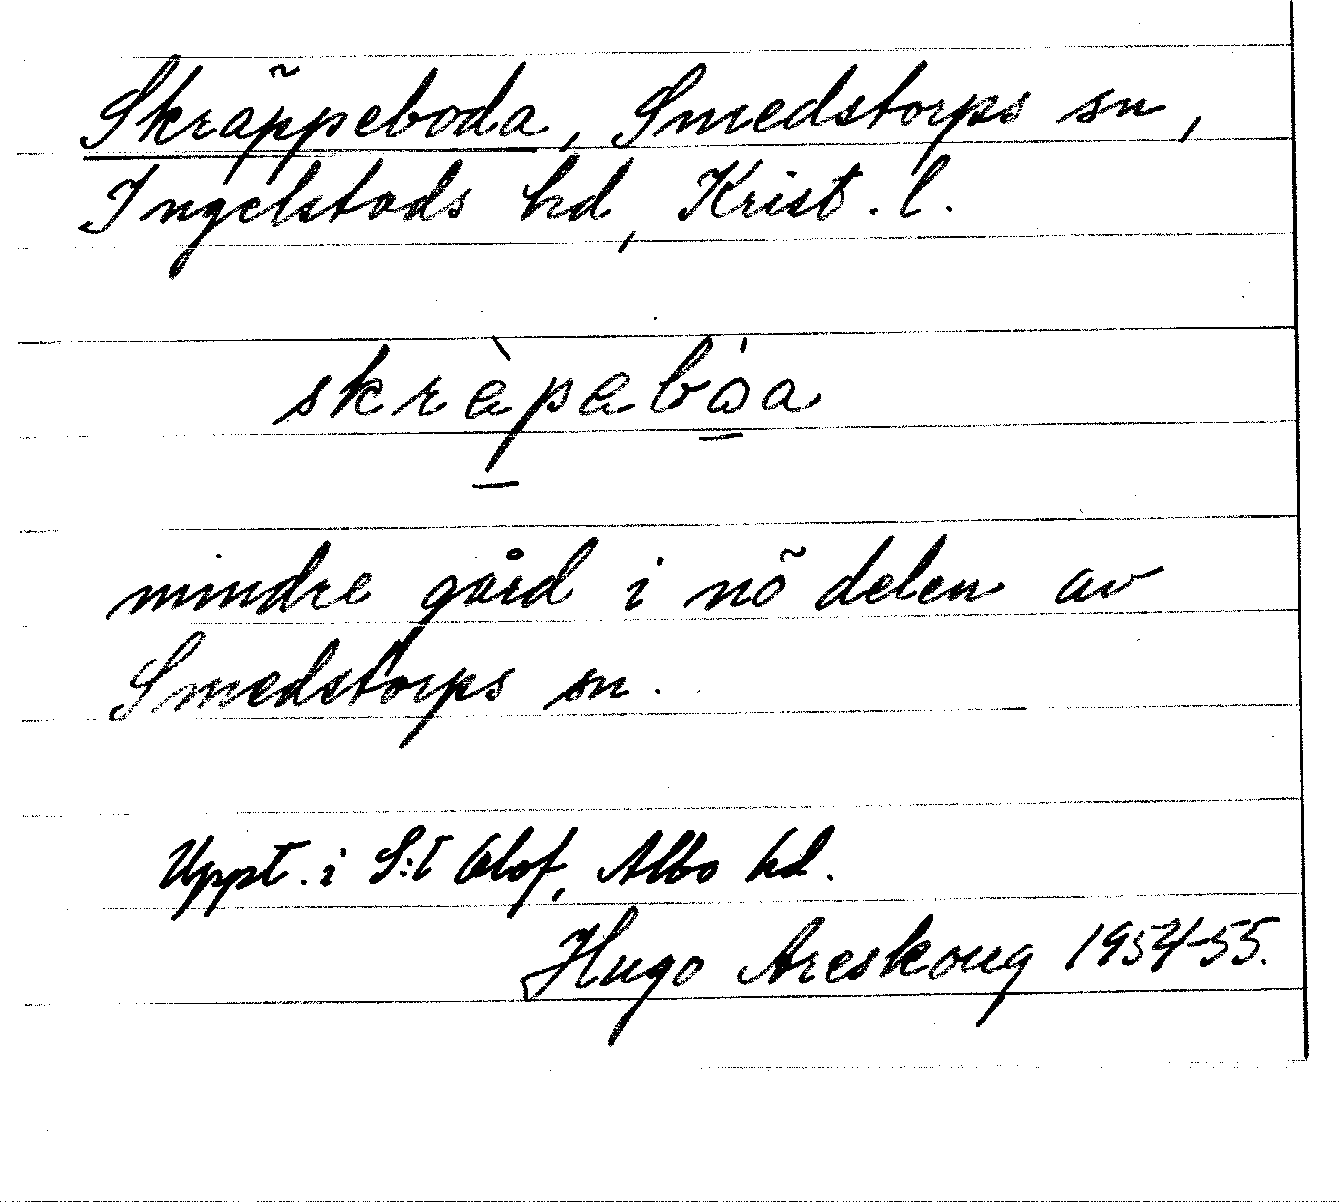 Skräppeboda, Smedstorps sn,
Ingelstads hd, Krist. l.
skræ̀pabǻa
mindre gård i nö delen av
Smedstorps sn.
Uppt. i S:t Olof, Albo hd.
Hugo Areskoug 1954-55.